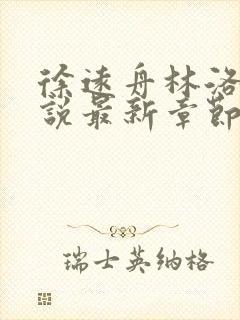 徐遠舟林洛
說最新章節
瑞士英纳格